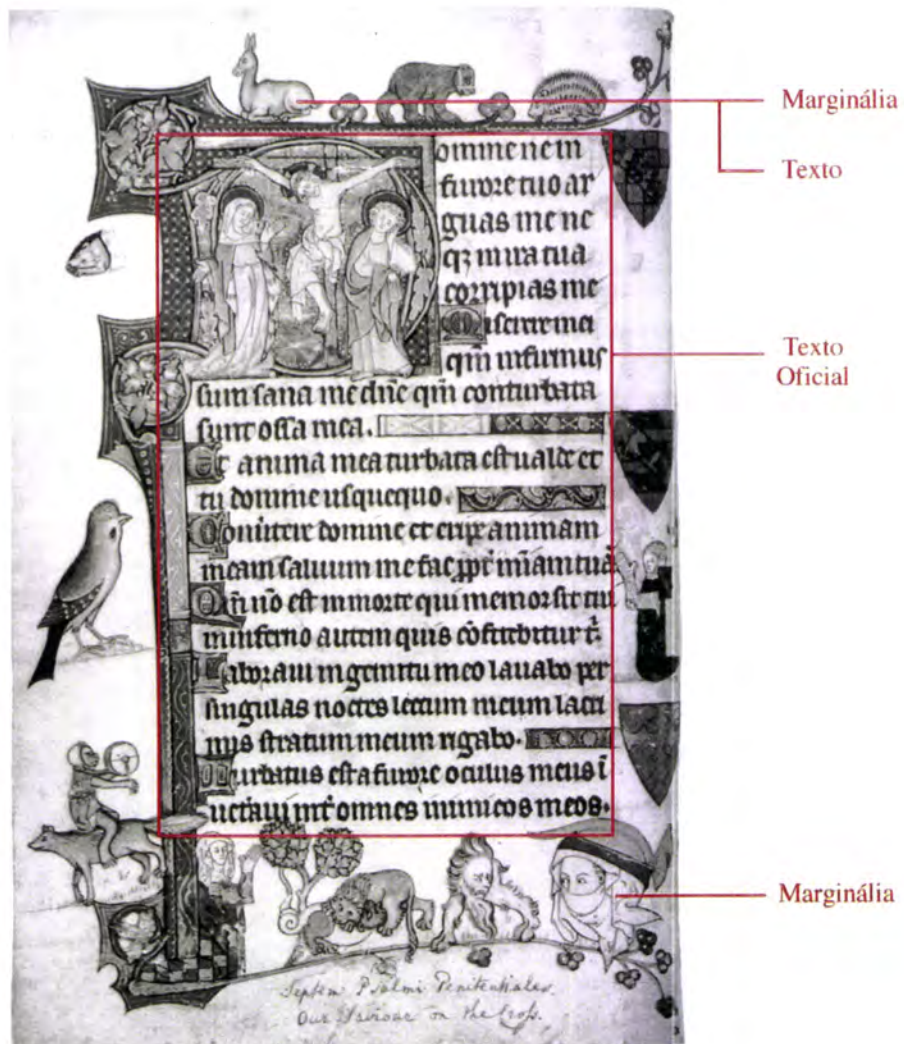 Marginália
Texto
Texto
Oficial
Marginália
omine ne in
furore tuo ar
guas me ne
qz in ira tua
corripias me
Miserere mei
qm̄ infirmus
sum sana me dn̄e qm̄ conturbata
sunt ossa mea.
Et anima mea turbata est ualde et
tu domine usquequo.
Conuertere domine et eripe animam
meam saluum me fac ppt̄ mīam tuā
Qm̄ nō est in morte qui memor sit tui
in inferno autem quis cōfitebitur t̄.
Laboraui in gemitu meo lauabo per
singulas noctes lectum meum lacri
mis stratum meum rigabo.
Turbatus est a furore oculus meus ī
ueteraui int̄ omnes inimicos meos.
Septem Psalmi Penitentiales.
Our Saviour on the Cross.